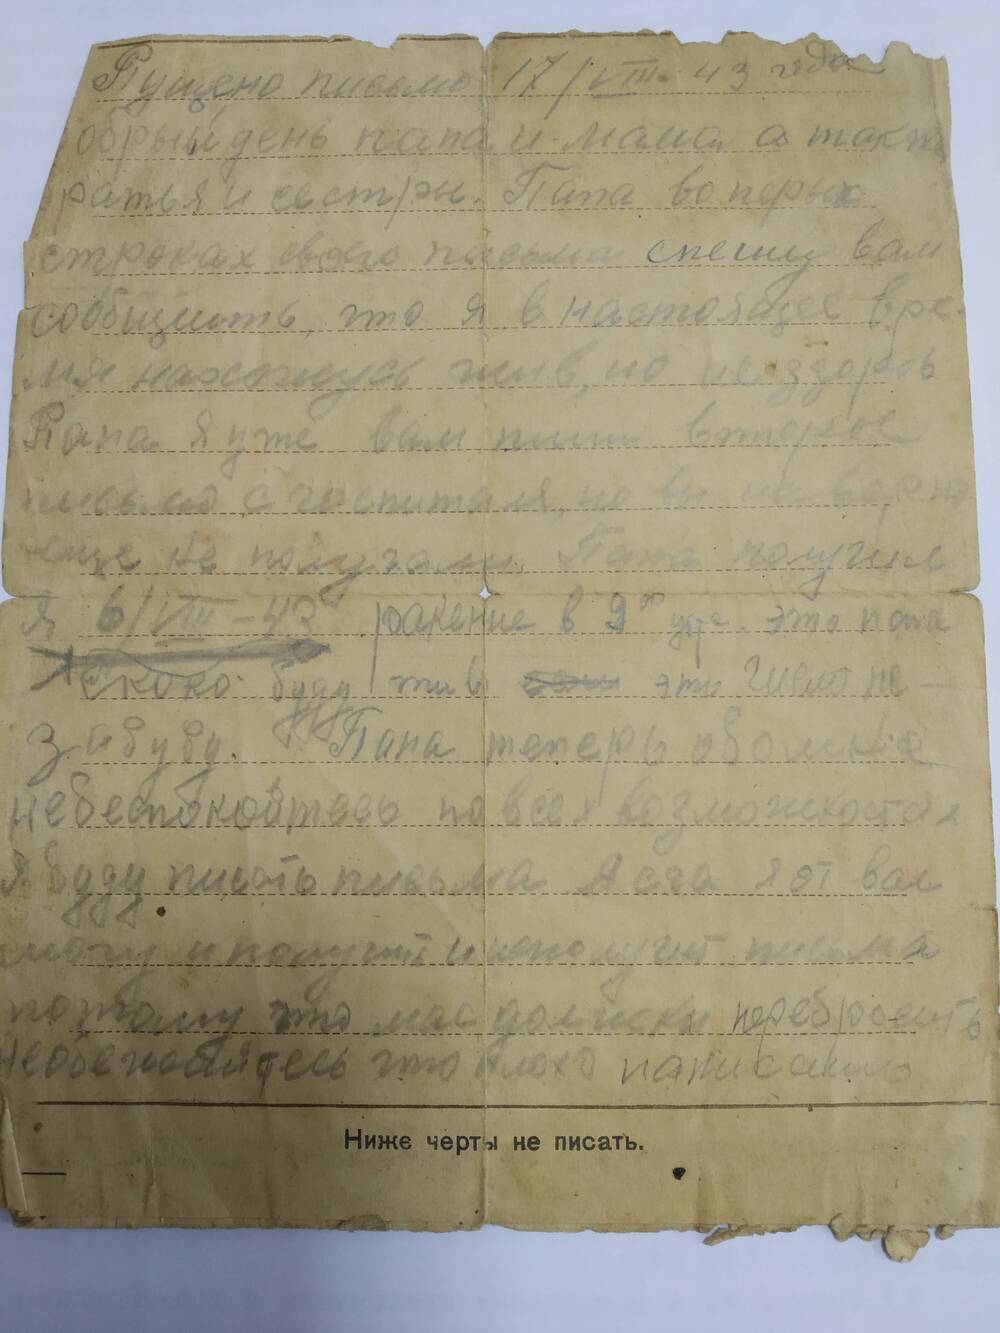 Пущено письмо 17/VIII 43 года
обрый день папа и мама а так же
ратья и сестры. Папа во перых
строках своего письма спешу вам
сообщить, что я в настоящее вре-
мя нахожусь жив, но не здоров
Папа я уже вам пишу второе
письмо с госпиталя, но вы на верно
еще не получали. Папа получил
Я 6/VIII-43 ранение в 9 ч утра. это папа
скоко буду жив это число не
забуду. Папа теперь обо мне
небеспокойтесь по всех возможностях
Я буду писать письма А я от вас
могу и получить и неполучит письма
потому что нас должны перебросить
Необежайтесь что плохо написанно
Ниже черты не писать.